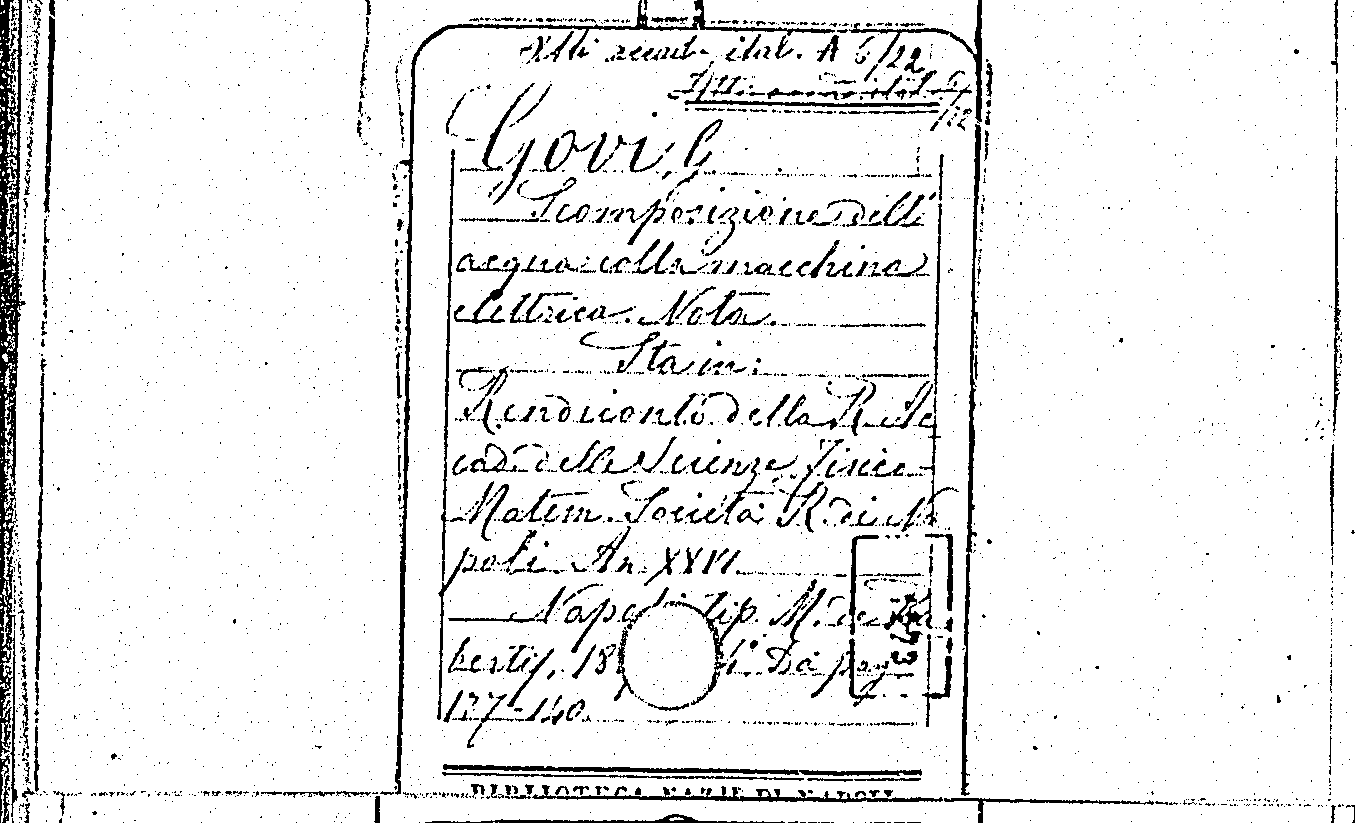 Atti accad. ital. A 6/22
Atti accad. ital. 6/
/22
Govi, G.
Scomposizione dell'
acqua colla macchina
elettrica. Nota.
Sta in:
Rendiconto della R. Ac
cad. delle Scienze Fisice
Matem. Società R. di Na
poli. An. XXVI.
Napoli tip. M. de Ru
bertis, 18 4° Da pag
137-140.
BIBLIOTECA NAZ. DI NAPOLI